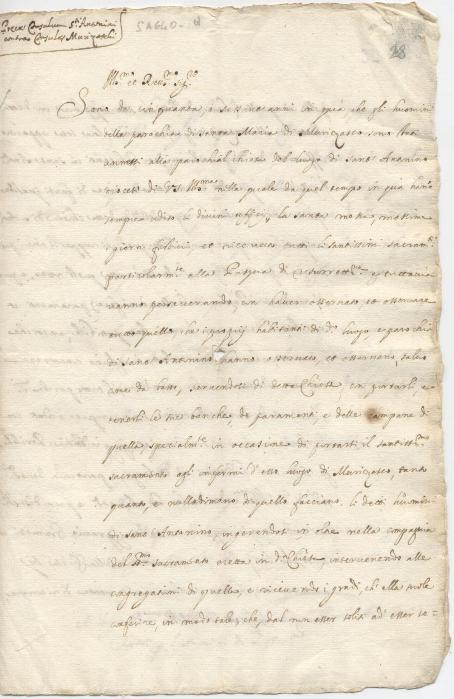 Precu Consulum Sti Antonini
contra Consules Murizaschi
28
Ill.mo et Rev.mo Sig.re
Sono da cinquanta, o sessanta anni in quà, che gli huomini
della parochia di Santa Maria di Murizasco sono stati
annessi alla parochial chiesa del luogo di Sant' Antonino
diocesi di V.S. Ill.ma nella quale da quel tempo in quà hanno
sempre udito li divini officij, la santa messa, massime
i giorni festivi et ricevuto tutti li santissimi sacram.ti
particolarm.te alla Pasqua di resurrett.ne e tuttavia
vanno perseverando, con haver osservato et osservare
tutto quello, che i proprij habitanti di d.o luogo e parochia
di Sant' Antonino hanno osservato, et osservano, salvo
di fatto, servendosi di detta Chiesa, in portarsi, e
tenersi le sue banche, de paramenti, e delle campane di
quella, specialm.te in occasione di portarsi il santiss.mo
sacramento agli infermi d'esso luogo di Murizasco, tanto
quanto, e nulladimano di quello facciano li detti huomini
di Sant' Antonino, ingerendosi in oltre nella compagnia
del S.mo Sacramento eretta in d.a Chiesa, intervenendo alle
congregationi di quella, e ricevendo i gradi, ch' ella suole
conferire, in modo tale, che, dal non esser soliti ad' esser se=